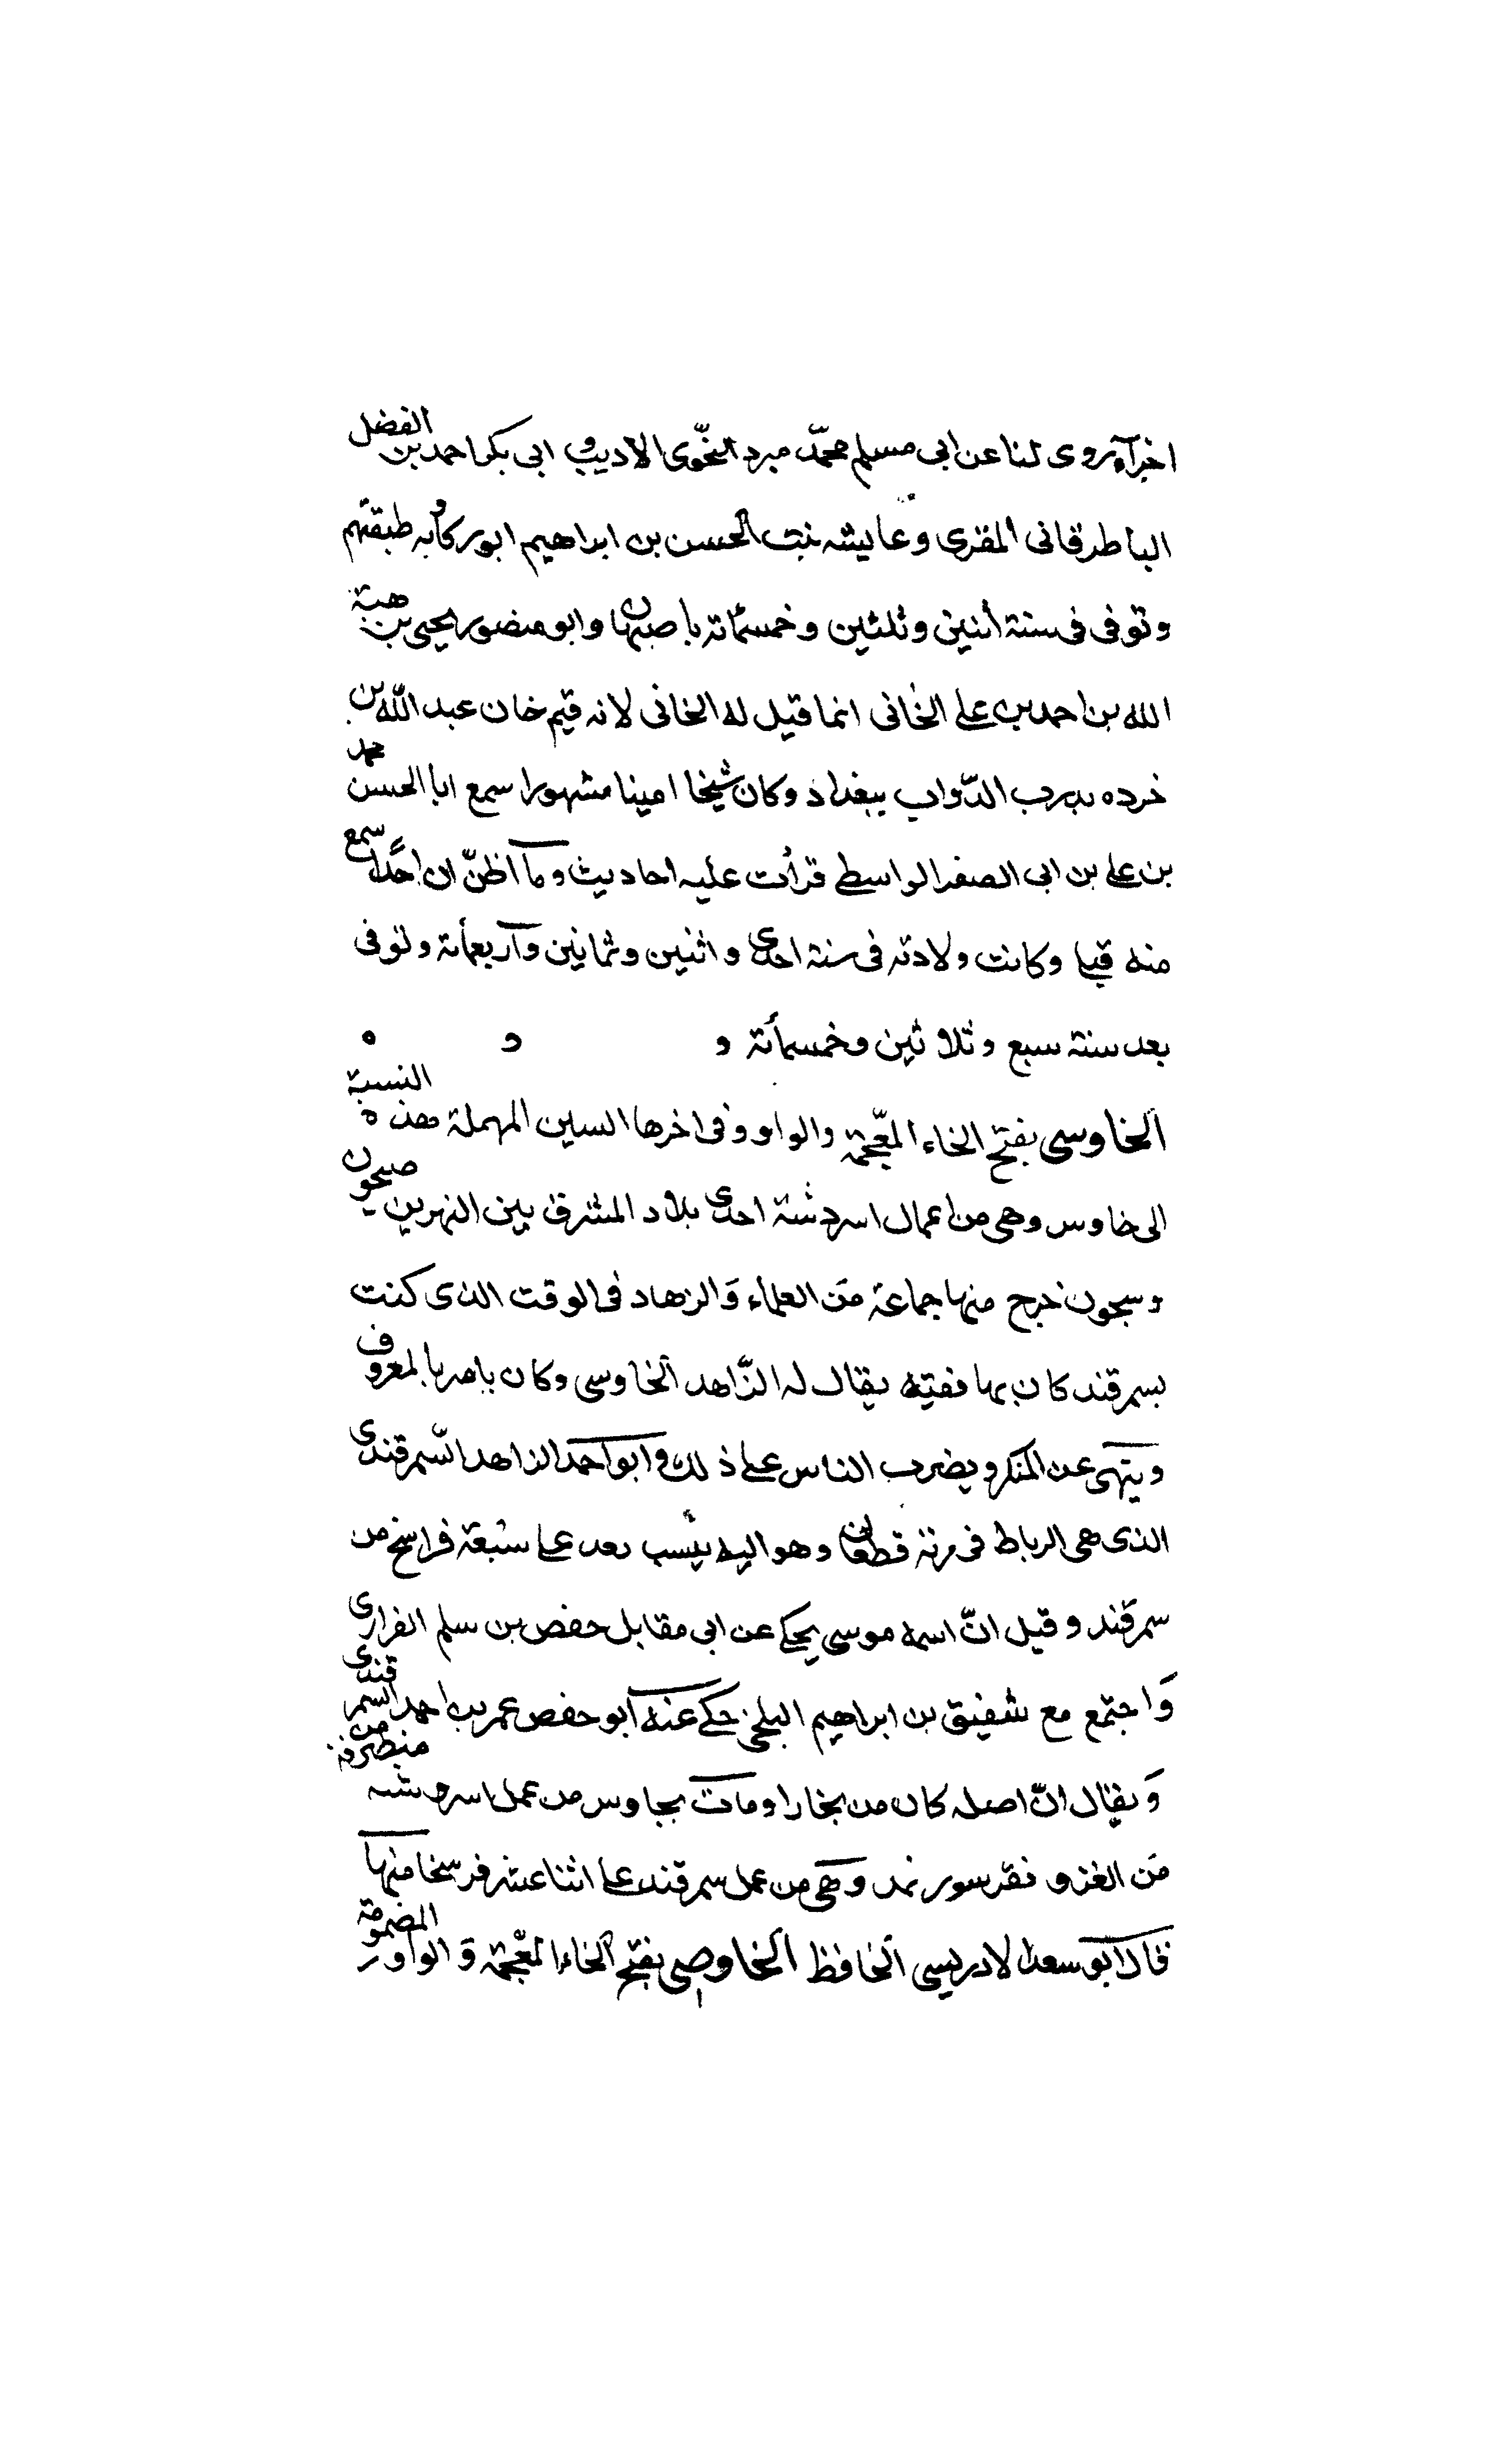 اخرآء روى لنا عن ابى مسلم محمّد مبرد النحّوى الاديب و ابى بكر احمد بن الفضل
الباطرقانى المقرى وعايشه بنت الحسن بن ابراهيم ابوركانه وطبقتهم
وتوفى فى سنة أثنين وثلثين وخمسمائة باصبهان وابو منصور يحيى بن هبة
الله بن احمد بن على الخانى انما قيل له الخانى لانه قيم خان عبد اللّه بن
خرده بدرب الدّواب ببغداد وكان شيخا امينا مشهورا سمع ابا الحسن محمد
بن على بن ابى الصقر الواسطى قرأت عليه احاديث ومآ اظنّ ان احدًا سمع
منه قبلى وكانت ولادته فى سنة احدى واثنين وثمانين وآربعمأىة وتوفى
بعد سنة سبع وثلاثين وخمسمأئة
الخاوسى بفتح الخاء المعّجمة والواو وفى اخرها السين المهملة هذه النسبة
الى خاوس وهى من اعمال اسرشنة احدى بلاد المشرق بين النهرين صيحون
وسجون خرج منها جماعة مَن العلمأء وَالزهاد فى الوقت الذى كنت
بسمرقند كان بها فقيه يقال له الزّاهد الخاوسى وكان يامر بالمعروف
وينهى عن المنكر ويضرب الناس على ذلك وابو احمد الزاهد السّمرقندى
الذى هى الرباط فى قطعان وهو اليه ينسب بعد على سبعة فراسخ من
سمرقند وقيل انّ اسمه موسى يحكى عن ابى مقابل حفص بن سلم الفرارى
وَاجتمع مع شفيق بن ابراهيم البلخى حكى عنه ابو حفص عمر بن احمد السمرقندى
وَيقال انّ اصله كان من بخارا ومات بجاوس من عمل اسروشنه من منصرفه
مَن الغزو وهى من عمل سمرقند على اثنا عشر فرسخا منها
قال ابو سعد الادريسى الحافظ الخاوصى بفتح الخاء المعّجمة وَالواو المضمومة